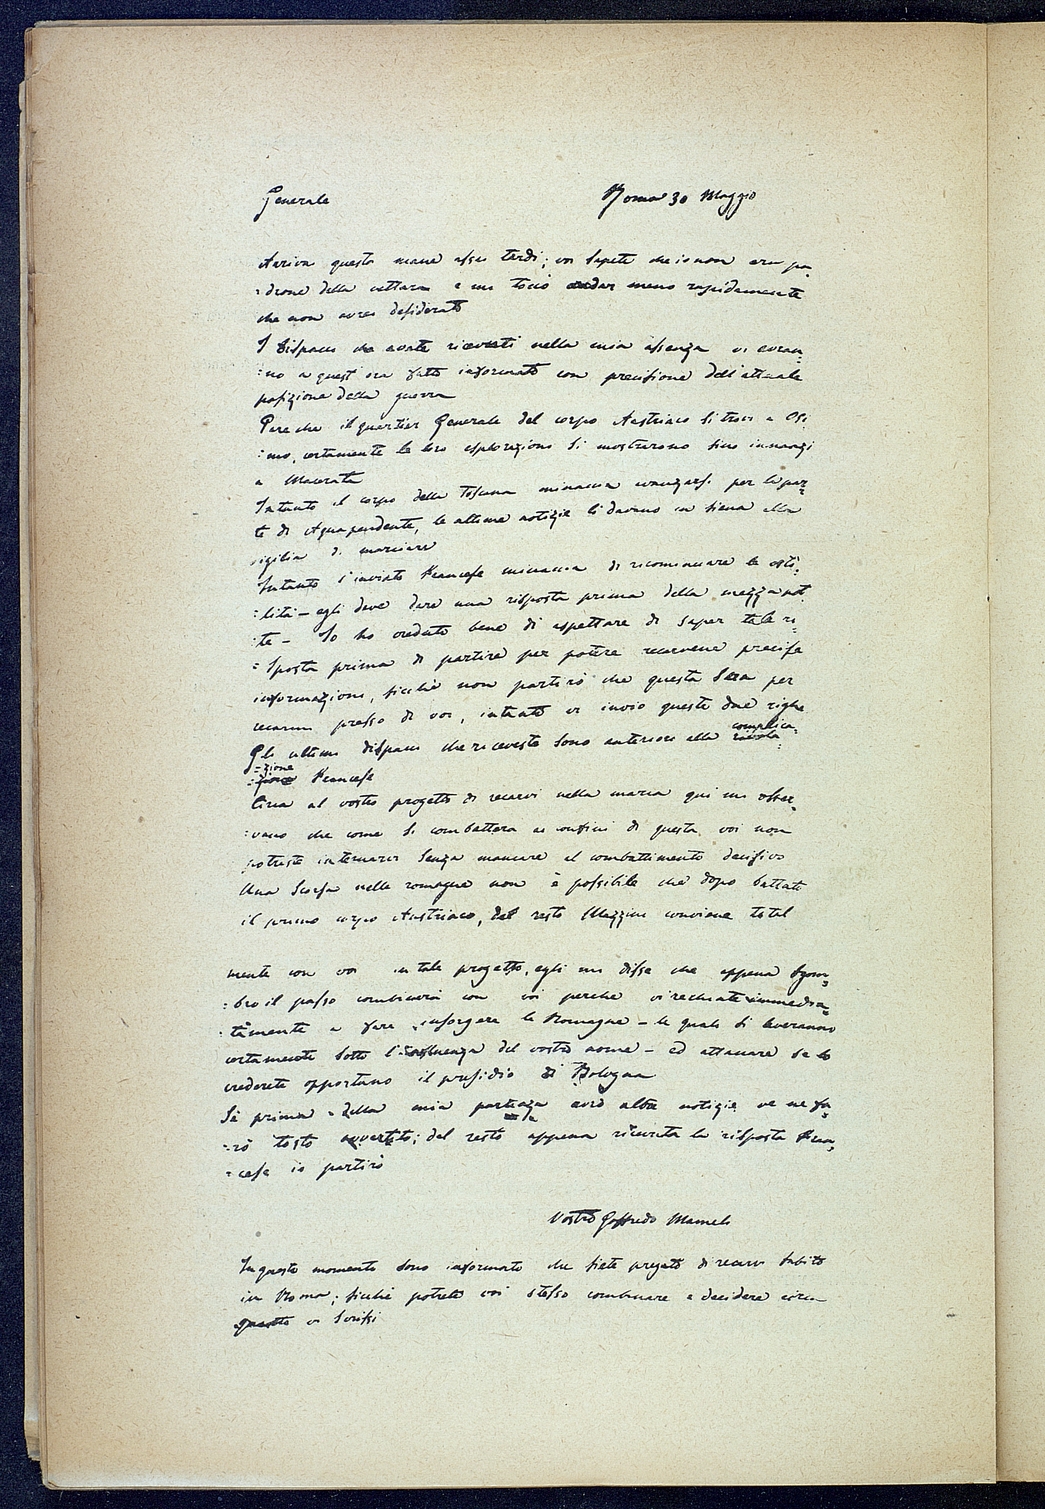 Generale
Roma 30 Maggio
Arrivai questa mane assai tardi; voi sapete che io non era pa
=drone della vettura e mi toccò andar meno rapidamente
che non avrei desiderato
I dispacci che avete ricevuti nella mia assenza vi avran=
=no a quest'ora fatto informato con precisione dell'attuale
posizione della guerra
Pare che il quartier Generale del corpo Austriaco si trovi a Osi
=mo, certamente le loro esplorazioni si mostrarono sino innanzi
a Macerata
Intanto il corpo della Toscana minaccia avanzarsi per la par=
te di Aquapendente, le ultime notizie li davano in Siena alla
vigilia di marciare
Intanto l'inviato Francese minaccia di ricominciare le osti=
=lità — egli deve dare una risposta prima della mezza not
=te — Io ho creduto bene di aspettare di saper tale ri=
=sposta prima di partire per potere recarvene precise
informazioni, sicchè non partirò che questa sera per
recarmi presso di voi, intanto vi invio queste due righe
Gli ultimi dispacci che riceveste sono anteriori alla complica=
=zione Francese
Circa al vostro progetto di recarvi nella marca qui mi osser=
=vano che come si combatterà ai confini di questa voi non
potreste internarvi senza mancare al combattimento decisivo
Una scorsa nelle romagne non è possibile che dopo battuto
il primo corpo Austriaco, del resto Mazzini conviene total
mente con voi in tale progetto, egli mi disse che appena sgom=
=bro il passo combinerà con voi perche vi rechiate immedia=
=tamente a fare insorgere le Romagne — le quali si leveranno
certamente sotto l'influenza del vostro nome — ed attaccare se lo
crederete opportuno il presidio di Bologna
Se prima della mia partenza avrò altre notizie ve ne fa=
=rò tosto avvertito; del resto appena ricevuta la risposta Fran=
=cese io partirò
Vostro Goffredo Mameli
In questo momento sono informato che siete pregato di recarvi subito
in Roma; sicchè potrete voi stesso combinare e decidere circa
quanto vi scrissi